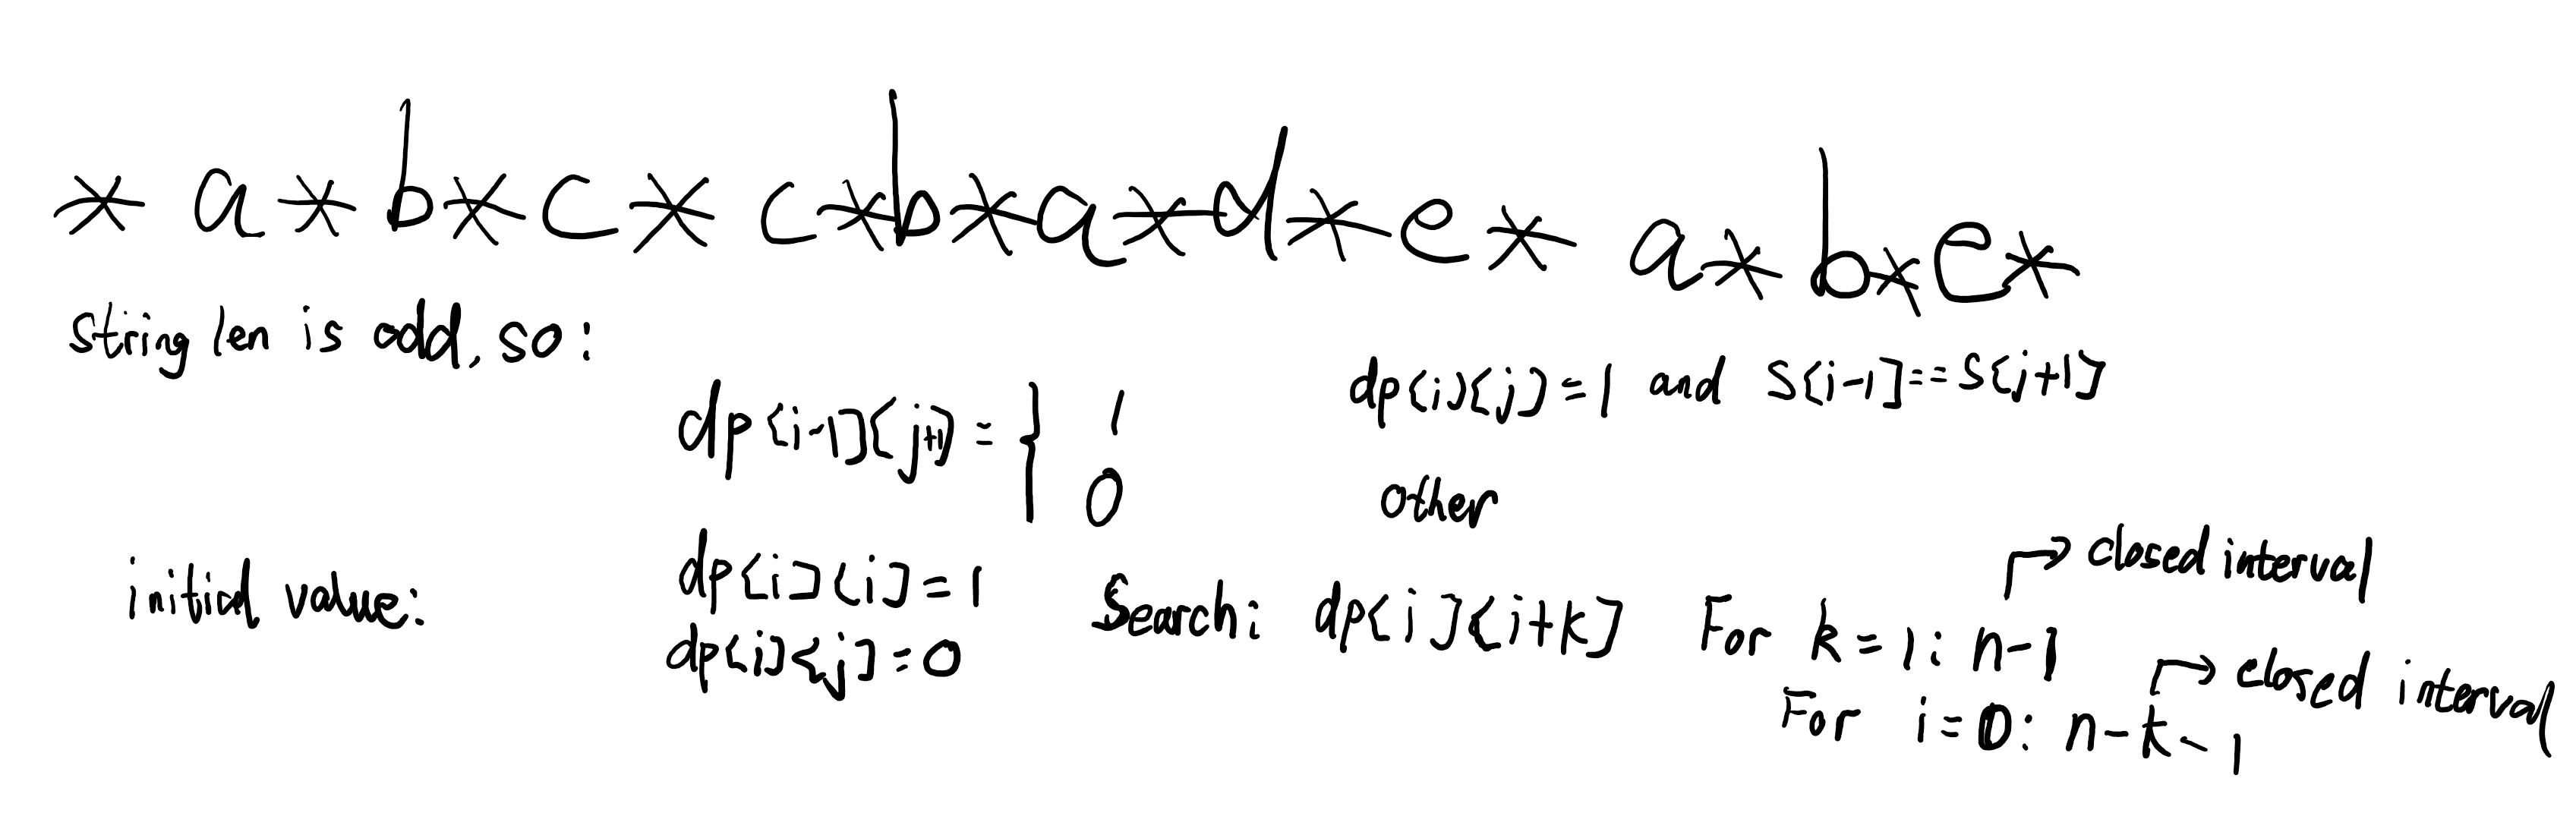 * a * b * c * c * b * a * d * e * a * b * e *
string len is odd, so:
dp[i-1][j+1] = { 1 dp[i][j]=1 and S[i-1]==S[j+1]
0 other
initial value: dp[i][i]=1
dp[i][j]=0
Search: dp[i][i+k] For k=1: n-1 → closed interval
For i=0: n-k-1 → closed interval